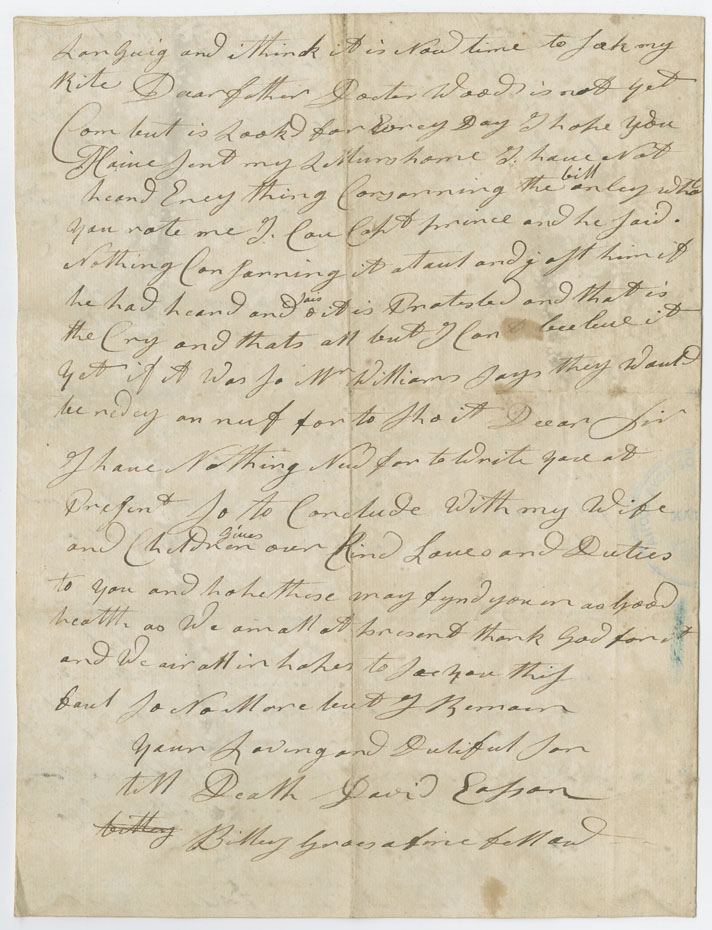 Languig and i think it is Now time to Seek my
Rite Dear father Docter Wood is not yet
Com but is Lookd for Every Day I hope you
Haive Sent my Letturs home I have Not
heard Eney thing Consarning the bill onley what
you rote me I Cou Capt prince and he Said
Nothing Consarning it ataul and j ast him if
he had heard and Sais it is Protested and that is
the Cry and thats all but I Cant beeleve it
yet if it Was So Mr Williams Says they Would
be redey an nuf for to Sho it Deear Sir
I have Nothing New for to Write you at
Present So to Conclude With my Wife
and Children gives our Kind Loves and Duties
to you and hope these may fynd you in as Good
health as We am all at present thank God for it
and We air all in hopes to See you this
faul So No More but I Remain
your Loving and Dutiful Son
till Death David Eason
bittey Billey Groes a fine fellow